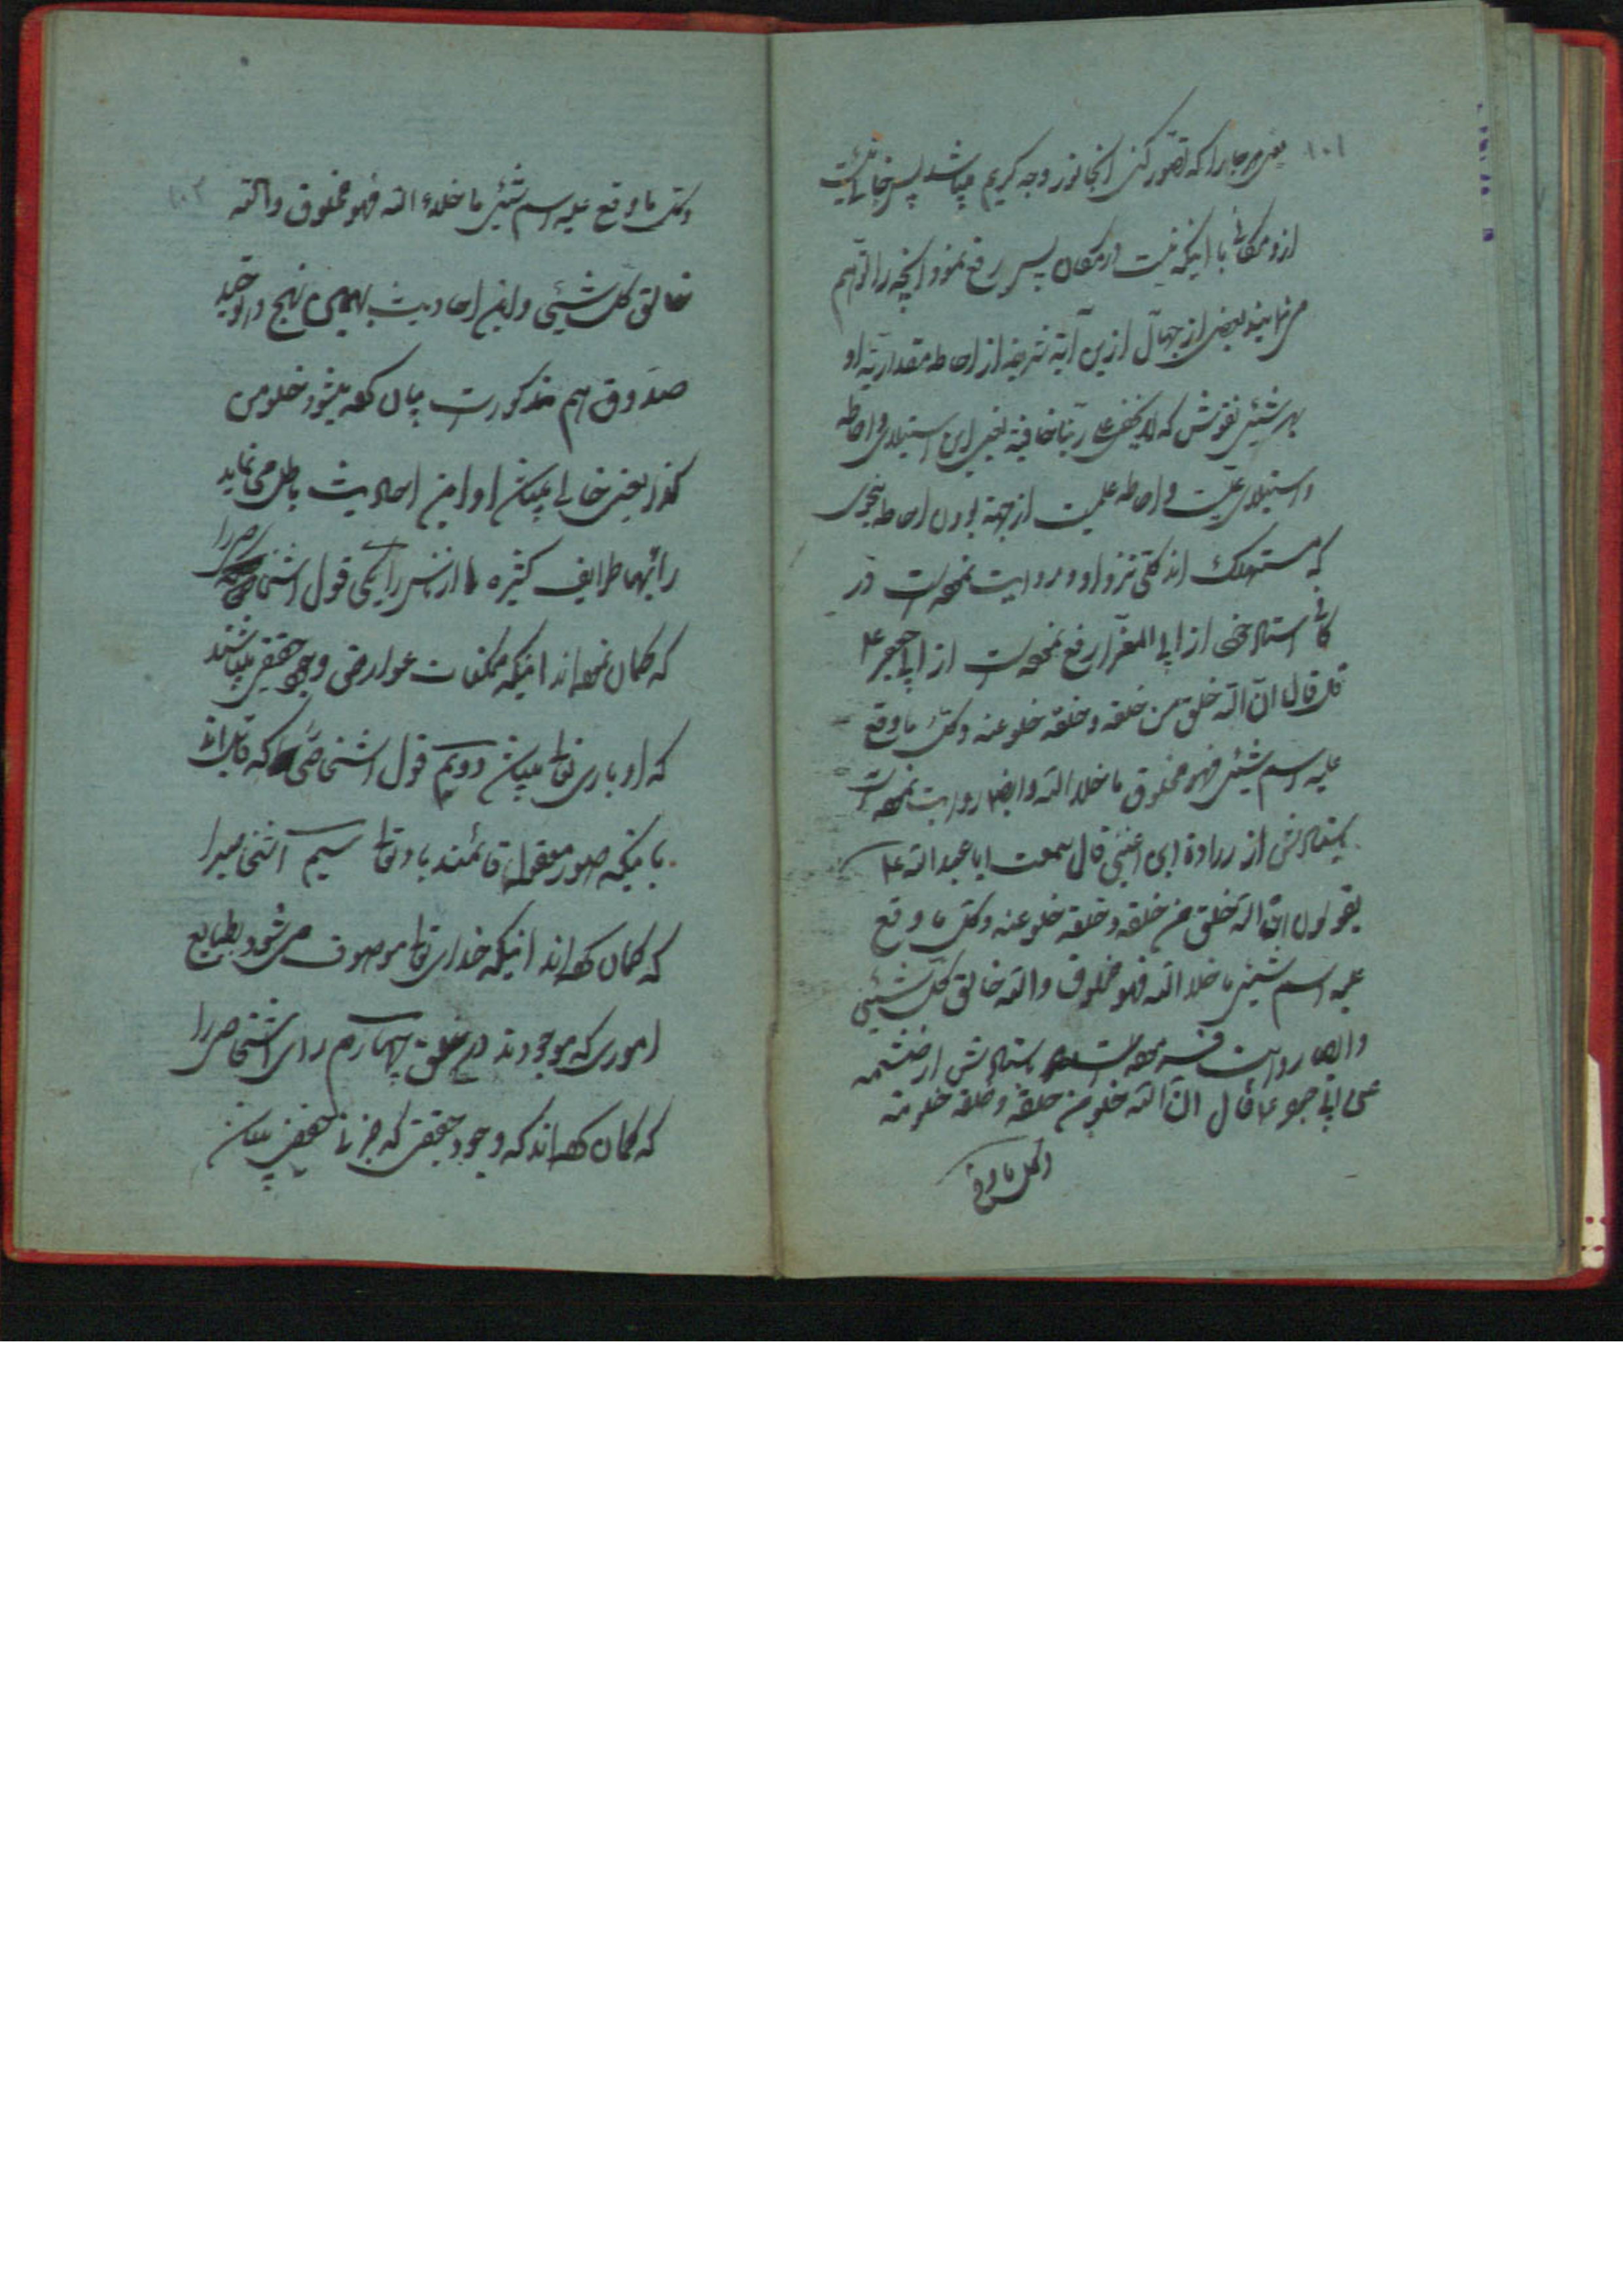 ۱۰۱
یعنی هر جا را که تصور کنی انجا نور وجه کریم میباشد پس خالی نیست
ازو مکانی با اینکه نیست در مکان پس رفع نمود انچه را توهم
می نمایند بعضی از جهال ازین آیه شریفه از احاطه مقداریه او
بهر شیئی بقولش که لا یخفی علی ربنا خافیة یعنی این استیلا و احاطه
و استیلای علیت و احاطه علمیت از جهة بودن احاطه بنحوی
که مستهلک اند کلی نزد او و روایت نموده است در
کافی باستاد خود از ابی المغرا رفع نموده است از ابی جعفر ع
قال قال ان الله خلو من خلقه و خلقه خلو عنه و کل ما وقع
علیه اسم شیئی فهو مخلوق ما خلا الله و ایضا روایت نموده است
باسنادش از زرارة ابن اعین قال سمعت ابا عبدالله ع
یقول ان الله خلو من خلقه و خلقه خلو عنه و کل ما وقع
علیه اسم شیئی ما خلا الله فهو مخلوق و الله خالق کل شیئی
و ایضا روایت باسنادش از خثیمه
عن ابی جعفر ع قال ان الله خلو من خلقه و خلقه خلو منه
و کل ما وقع
۱۰۲
و کل ما وقع علیه اسم شیئی ما خلاء الله فهو مخلوق و الله
خالق کل شیئی و این احادیث بهمین نهج در توحید
صدوق هم مذکورست بیان کرده میشود خلو من
کذا یعنی خالی میباشد او و این احادیث باطل می نماید
رأیهای طرایف کثیره را از ناس را یکی قول اشخاصی را
که گمان نموده اند اینکه ممکنات عوارض وجود حقیقی میباشند
که او باری تعالی میباشد دویم قول اشخاصی که قایل اند
باینکه صور معقوله قائمند باو تعالی سیم اشخاصیرا
که گمان کرده اند اینکه خدای تعالی موصوف می شود بطبایع
اموری که موجودند در خلق چهارم رای اشخاصی را
که گمان کرده اند که وجود حقیقی که جزئی حقیقی میباشد